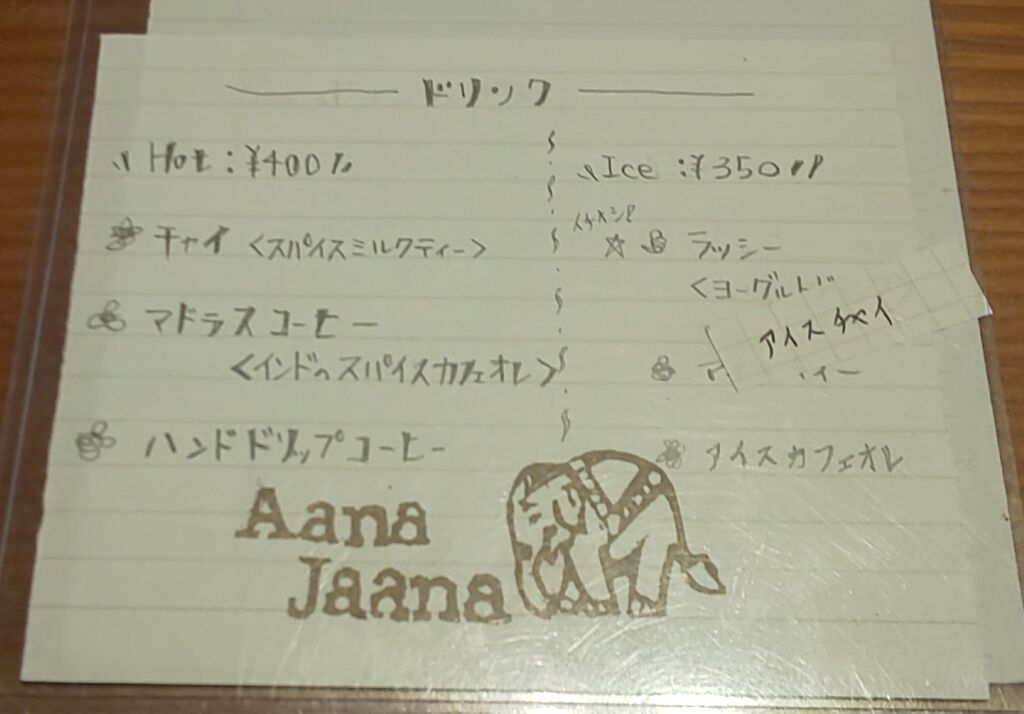 ドリンク
Hot : ¥400
チャイ <スパイスミルクティー>
マドラスコーヒー
<インドのスパイスカフェオレ>
ハンドドリップコーヒー
Ice : ¥350
イチオシ!
☆ ラッシー
<ヨーグルトド
アイスチャイ
アイスカフェオレ
Aana
Jaana